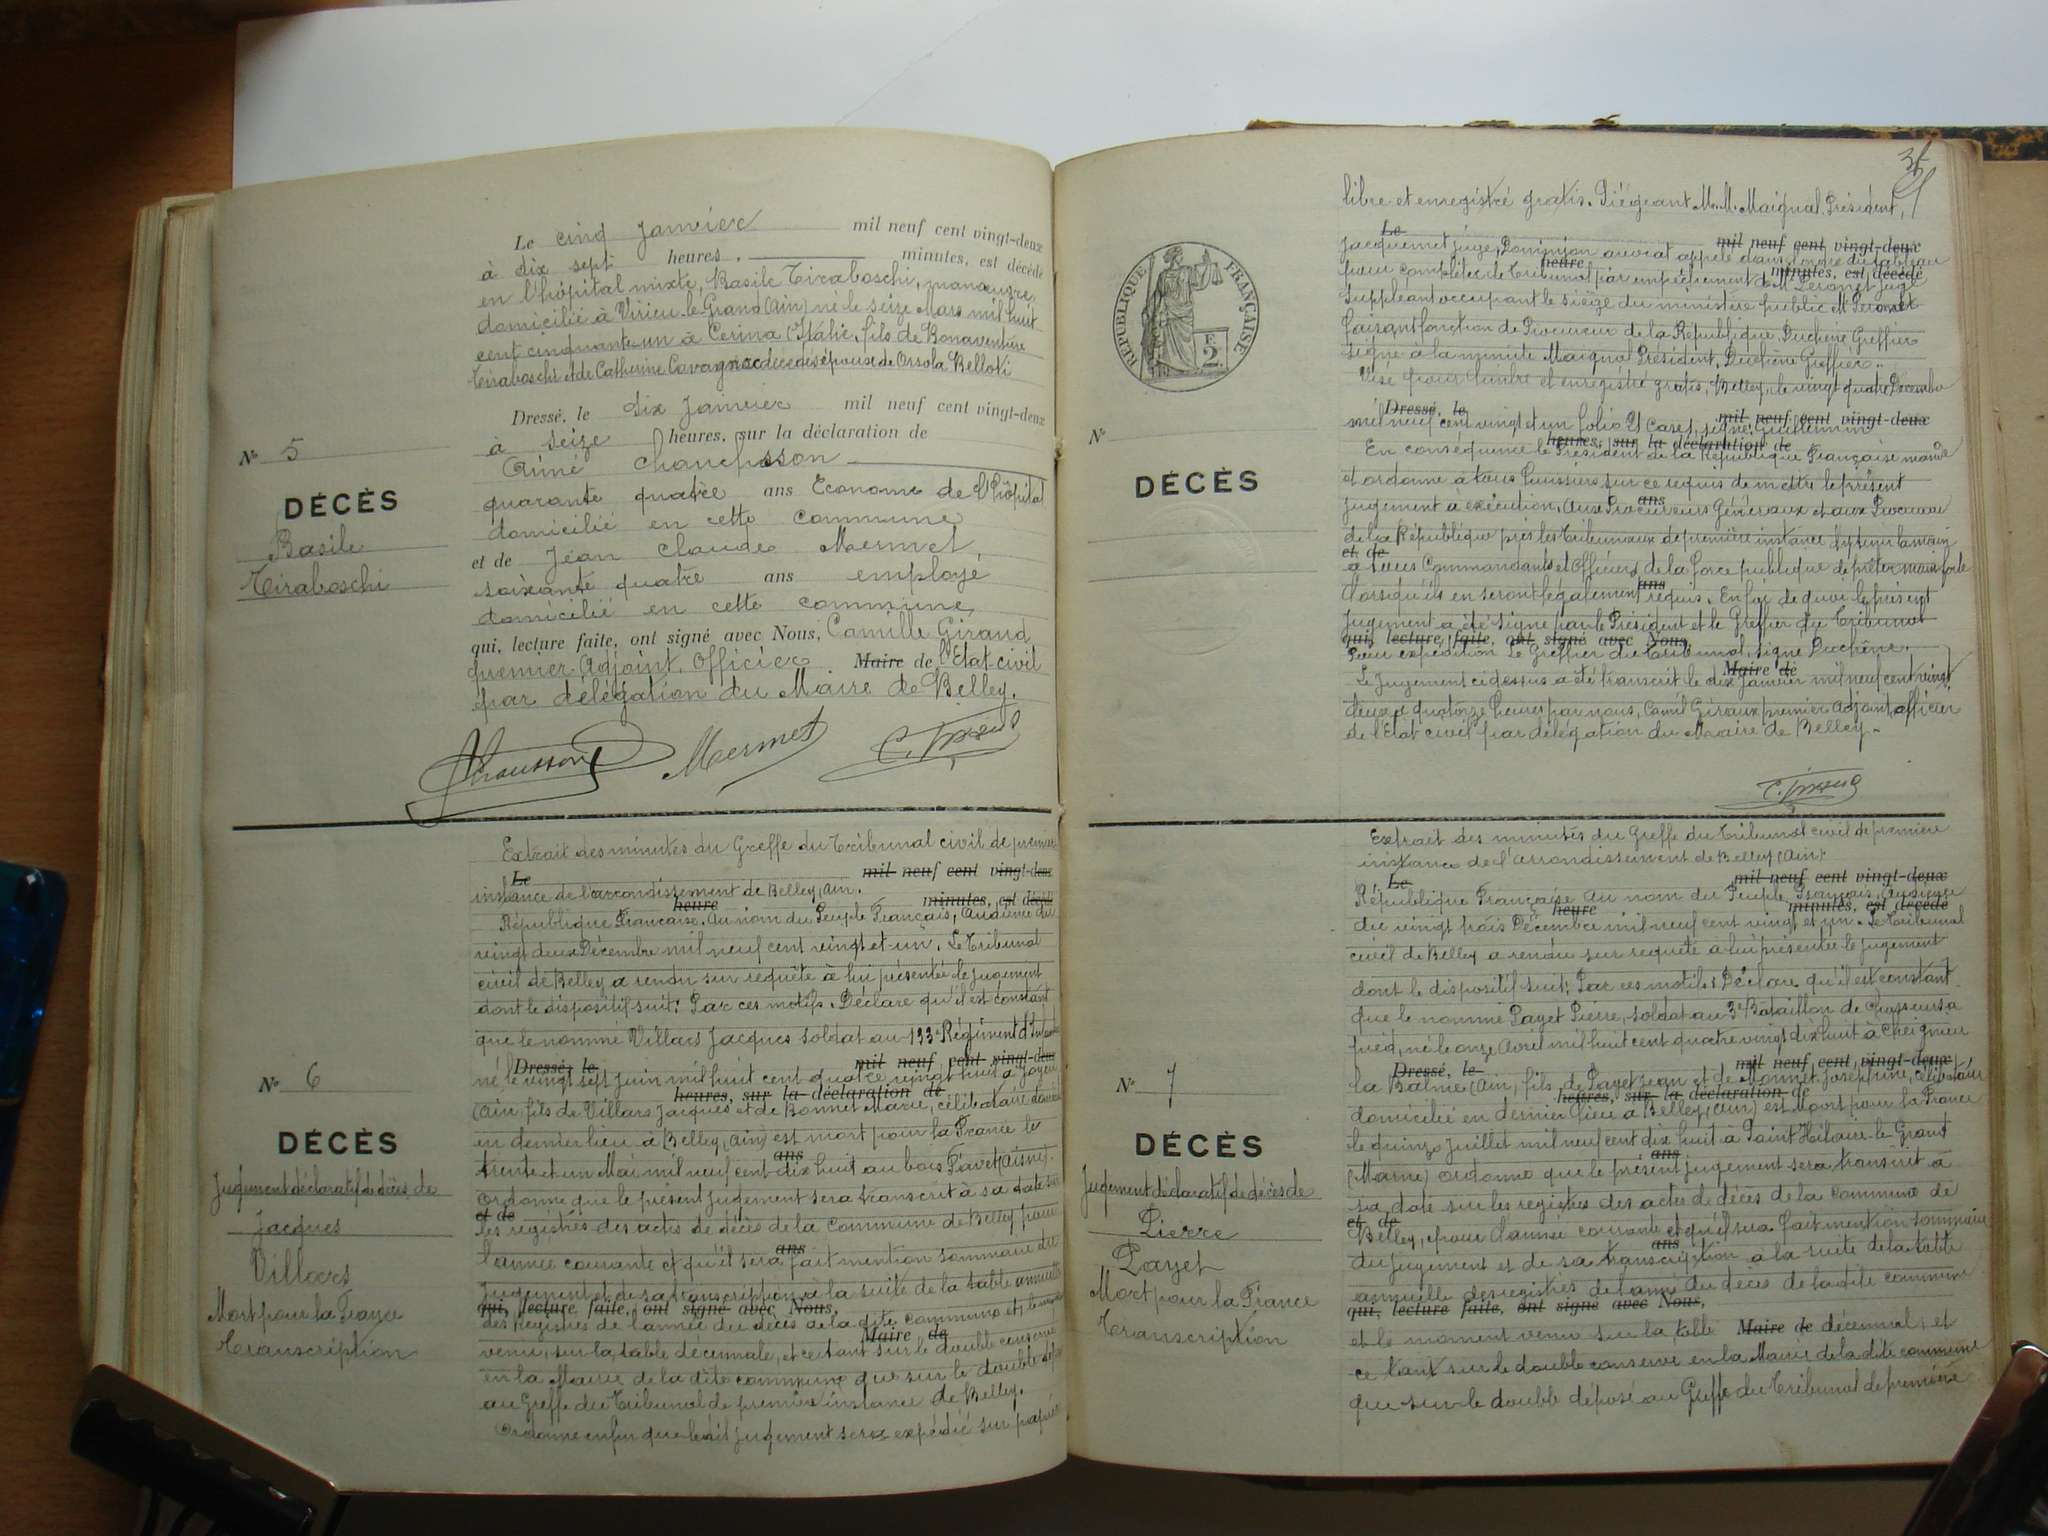 Le cinq Janvier mil neuf cent vingt-deux
à dix sept heures, minutes, est décédé
en l'hôpital mixte, Basile Tiraboschi, manœuvre,
domicilié à Virieu-le-Grand (Ain) né le seize Mars mil huit
cent cinquante un à Cerina (Italie, fils de Bonaventure
Tiraboschi et de Catherine décédés époux de Orsola Belloti
Dressé, le dix Janvier mil neuf cent vingt-deux
à seize heures, sur la déclaration de
Aimé Chaucusson
quarante quatre ans Econome de l'hôpital
domicilié en cette commune
et de Jean Claude Mermet,
soixante quatre ans employé
domicilié en cette commune
qui, lecture faite, ont signé avec Nous, Camille Giraud
premier Adjoint, Officier Maire de l'Etat civil
par délégation du Maire de Belley.
Mermet
N° 5
DÉCÈS
Basile
Tiraboschi
Extrait des minutes du Greffe du Tribunal civil de première
Le mil neuf cent vingt-deux
instance de l'arrondissement de Belley, Ain.
heure minutes, est décédé
République Française. Au nom du Peuple Français, Audience du
vingt deux Décembre mil neuf cent vingt et un. Le Tribunal
civil de Belley a rendu sur requête à lui présentée le jugement
dont le dispositif suit: Par ces motifs. Déclare qu'il est constant
que le nommé Villars Jacques soldat au 133e Régiment d'Infanterie
Dressé, le mil neuf cent vingt-deux
né le vingt sept Juin mil huit cent quatre vingt huit à Joyeu
heures, sur la déclaration de
(Ain, fils de Villars Jacques et de Bonnet Marie, célibataire domicilié
en dernier lieu à Belley, (Ain) est mort pour la France le
ans
trente et un Mai mil neuf cent dix huit au bois Pavet (Aisne).
Ordonne que le présent jugement sera transcrit à sa date sur
et de
les registres des actes de décès de la commune de Belley pour
ans
l'année courante et qu'il sera fait mention sommaire du
jugement et de sa transcription à la suite de la table annuelle
qui, lecture faite, ont signé avec Nous,
des registres de l'année du décès de la dite commune et, le moment
Maire de
venu, sur la table décennale, et ce tant sur le double conservé
en la Mairie de la dite commune que sur le double déposé
au Greffe du Tribunal de première instance de Belley.
Ordonne enfin que ledit jugement sera expédié sur papier
N° 6
DÉCÈS
Jugement déclaratif de décès de
Jacques
Villars
Mort pour la France
Transcription
libre et enregistré gratis. Siégeant M.M. Maignal Président,
Le mil neuf cent vingt-deux
Jacquemet juge, Dominjon avocat appelé dans l'ordre du tableau
heure minutes, est décédé
pour compléter le Tribunal par empêchement de M. Peronet juge
suppléant occupant le siège du ministère public M Peronet
faisant fonction de Procureur de la République, Duchêne, Greffier
signé à la minute Maignal Président, Duchêne Greffier.
Visé pour timbre et enregistré gratis, Belley, le vingt quatre Décembre
Dressé, le mil neuf cent vingt-deux
mil neuf cent vingt et un folio 21 Case 1, signé: Guillemin
heures, sur la déclaration de
En conséquence le Président de la République Française mande
et ordonne à tous huissiers sur ce requis de mettre le présent
ans
jugement à exécution, Aux Procureurs Généraux et aux Procureurs
de la République près les Tribunaux de première instance d'y tenir la main
et de
à tous Commandants et Officiers de la force publique de prêter main forte
ans
lorsqu'ils en seront légalement requis. En foi de quoi le présent
jugement a été signé par le Président et le Greffier du Tribunal
qui, lecture faite, ont signé avec Nous,
Pour expédition Le Greffier du Tribunal, signé Duchêne.
Maire de
Le Jugement ci-dessus a été transcrit le dix Janvier mil neuf cent vingt
deux à quatorze heures par nous, Camil Giraux premier Adjoint, officier
de l'Etat civil par délégation du Maire de Belley.
RÉPUBLIQUE FRANÇAISE
F. 2.
N°
DÉCÈS
Extrait des minutes du Greffe du Tribunal civil de première
instance de l'Arrondissement de Belley (Ain)
Le mil neuf cent vingt-deux
République Française Au nom du Peuple Français, Audience
heure minutes, est décédé
du vingt trois Décembre mil neuf cent vingt et un. Le Tribunal
civil de Belley a rendu sur requête à lui présentée le jugement
dont le dispositif suit: Par ces motifs: Déclare qu'il est constant
que le nommé Payet Pierre, soldat au 3e Bataillon de Chasseurs à
pied, né le onze Avril mil huit cent quatre vingt dix huit à Cheignieu
Dressé, le mil neuf cent vingt-deux
la Balme (Ain, fils de Payet Jean et de Monnet Joséphine, célibataire
heures, sur la déclaration de
domicilié en dernier lieu à Belley, (Ain) est mort pour la France
le quinze Juillet mil neuf cent dix huit à Saint Hilaire-le-Grand
ans
(Marne) ordonne que le présent jugement sera transcrit à
sa date sur les registres des actes de décès de la commune de
et de
Belley, pour l'année courante et qu'il sera fait mention sommaire
ans
du jugement et de sa transcription à la suite de la table
annuelle des registres de l'année du décès de la dite commune
qui, lecture faite, ont signé avec Nous,
et le moment venu sur la table Maire de décennal, et
ce tant sur le double conservé en la Mairie de la dite commune
que sur le double déposé au Greffe du Tribunal de première
N° 7
DÉCÈS
Jugement déclaratif de décès de
Pierre
Payet
Mort pour la France
Transcription